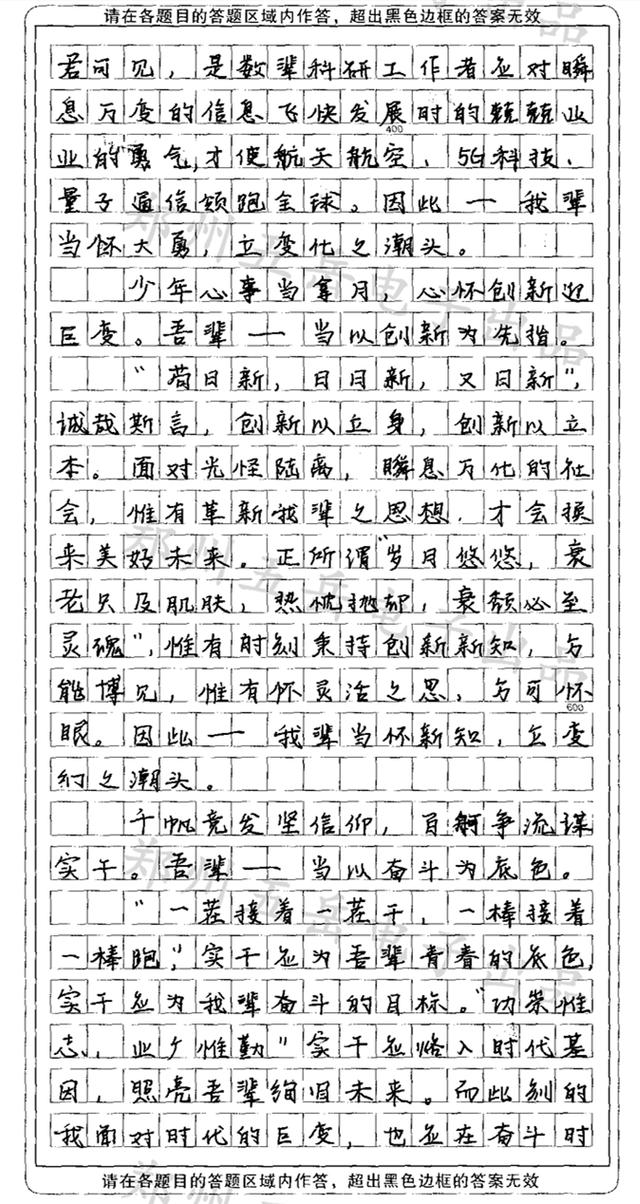 请在各题目的答题区域内作答，超出黑色边框的答案无效
君可见，是数辈科研工作者应对瞬
息万变的信息飞快发展时的兢兢业
400
业的勇气，才使航天航空、5G科技、
量子通信领跑全球。因此——我辈
当怀大勇，立变化之潮头。
少年心事当拿月，心怀创新迎
巨变。吾辈——当以创新为先指。
“苟日新，日日新，又日新”，
诚哉斯言，创新以立身，创新以立
本。面对光怪陆离，瞬息万化的社
会，惟有革新我辈之思想，才会换
来美好未来。正所谓“岁月悠悠，衰
老只及肌肤，热忱抛却，衰颓必至
灵魂”，惟有时刻秉持创新新知，方
能博见，惟有怀灵活之思，方可怀
600
眼。因此——我辈当怀新知，立变
幻之潮头。
千帆竞发坚信仰，百舸争流谋
实干。吾辈——当以奋斗为底色。
“一茬接着一茬干，一棒接着
一棒跑”，实干应为吾辈青春的底色，
实干应为我辈奋斗的目标。“功崇惟
志，业广惟勤”实干应烙入时代基
因，照亮吾辈绚烂未来。而此刻的
我面对时代的巨变，也应在奋斗时
请在各题目的答题区域内作答，超出黑色边框的答案无效
郑州五岳电子出品
郑州五岳电子出品
郑州五岳电子出品